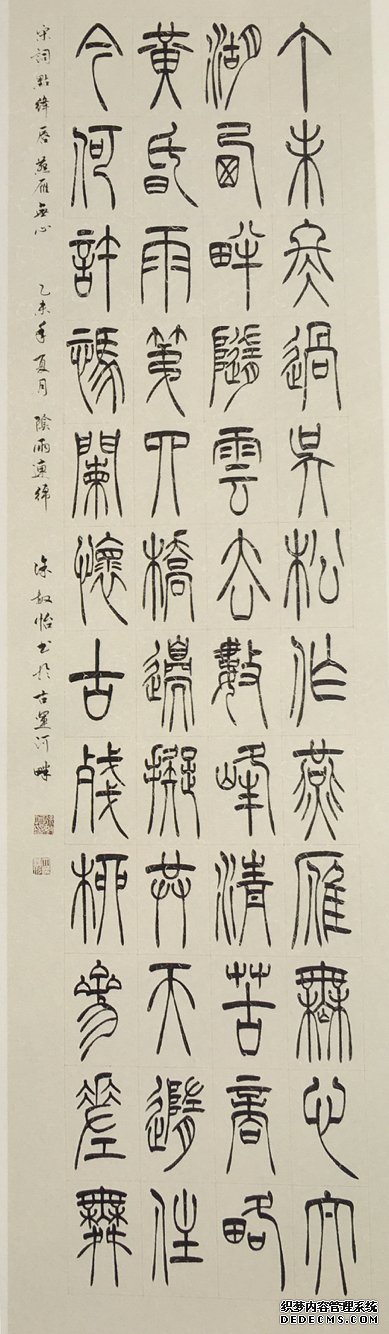 丁未冬過吳松作燕雁無心太
湖西畔隨雲去數峰清苦商略
黃昏雨第四橋邊擬共天隨住
今何許憑闌懷古殘柳參差舞
宋詞點絳唇燕雁無心 乙未年夏月 陰雨連綿 徐怡書於古運河畔
织梦内容管理系统
DEDECMS.COM